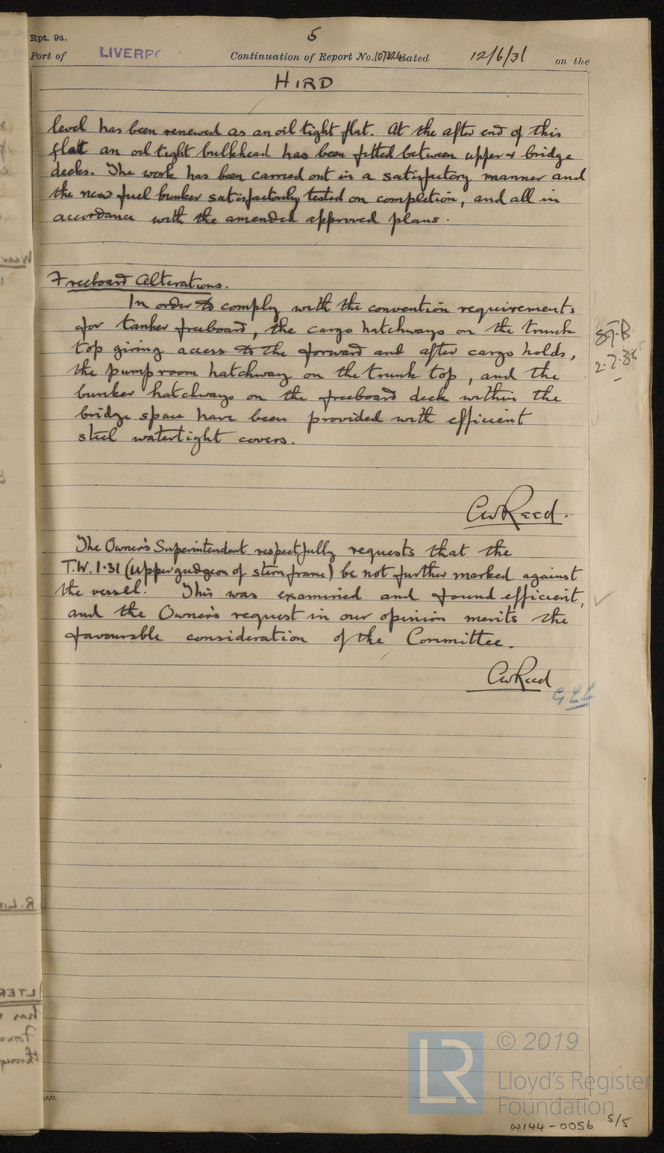 Rpt. 9a.
5
Port of LIVERPO Continuation of Report No. dated 12/6/31 on the
HIRD
level has been renewed as an oil tight flat. At the after end of this
flatt an oil tight bulkhead has been fitted between upper & bridge
decks. The work has been carried out in a satisfactory manner and
the new fuel bunker satisfactorily tested on completion, and all in
accordance with the amended approved plans.
Freeboard Alterations.
In order to comply with the convention requirements
for tanker freeboard, the cargo hatchways on the trunk
top giving access to the forward and after cargo holds,
the pump room hatchway on the trunk top, and the
bunker hatchways on the freeboard deck within the
bridge space have been provided with efficient
steel watertight covers.
CWReed.
The Owner's Superintendent respectfully requests that the
T.W. 1.31 (upper gudgeon of sternframe) be not further marked against
the vessel. This was examined and found efficient,
and the Owner's request in our opinion merits the
favourable consideration of the Committee.
CWReed
© 2019
LR
Lloyd's Register
Foundation
W144-0056 5/5